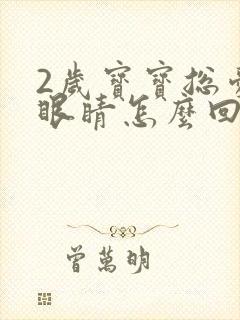 2歲寶寶總
眼睛怎麼回
曾萬明